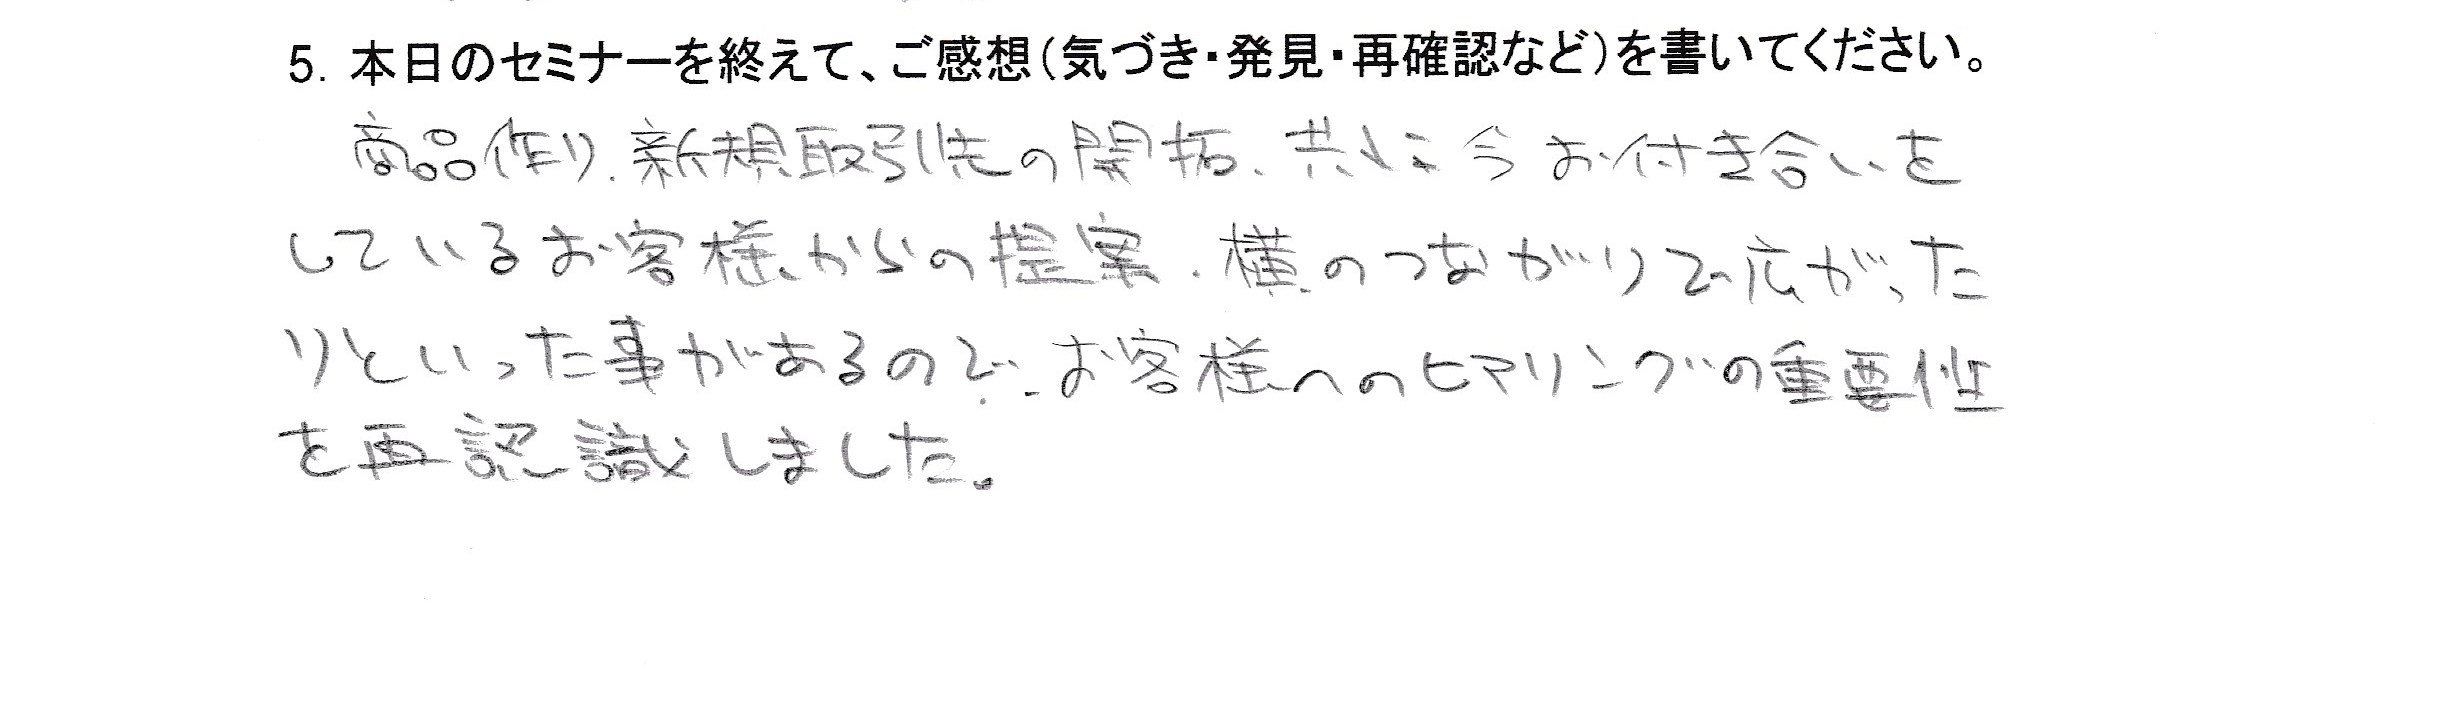 5. 本日のセミナーを終えて、ご感想(気づき・発見・再確認など)を書いてください。
商品作り、新規取引先の開拓、共に今お付き合いを
しているお客様からの提案、横のつながりで広がった
りといった事があるので、お客様へのヒアリングの重要性
を再認識しました。